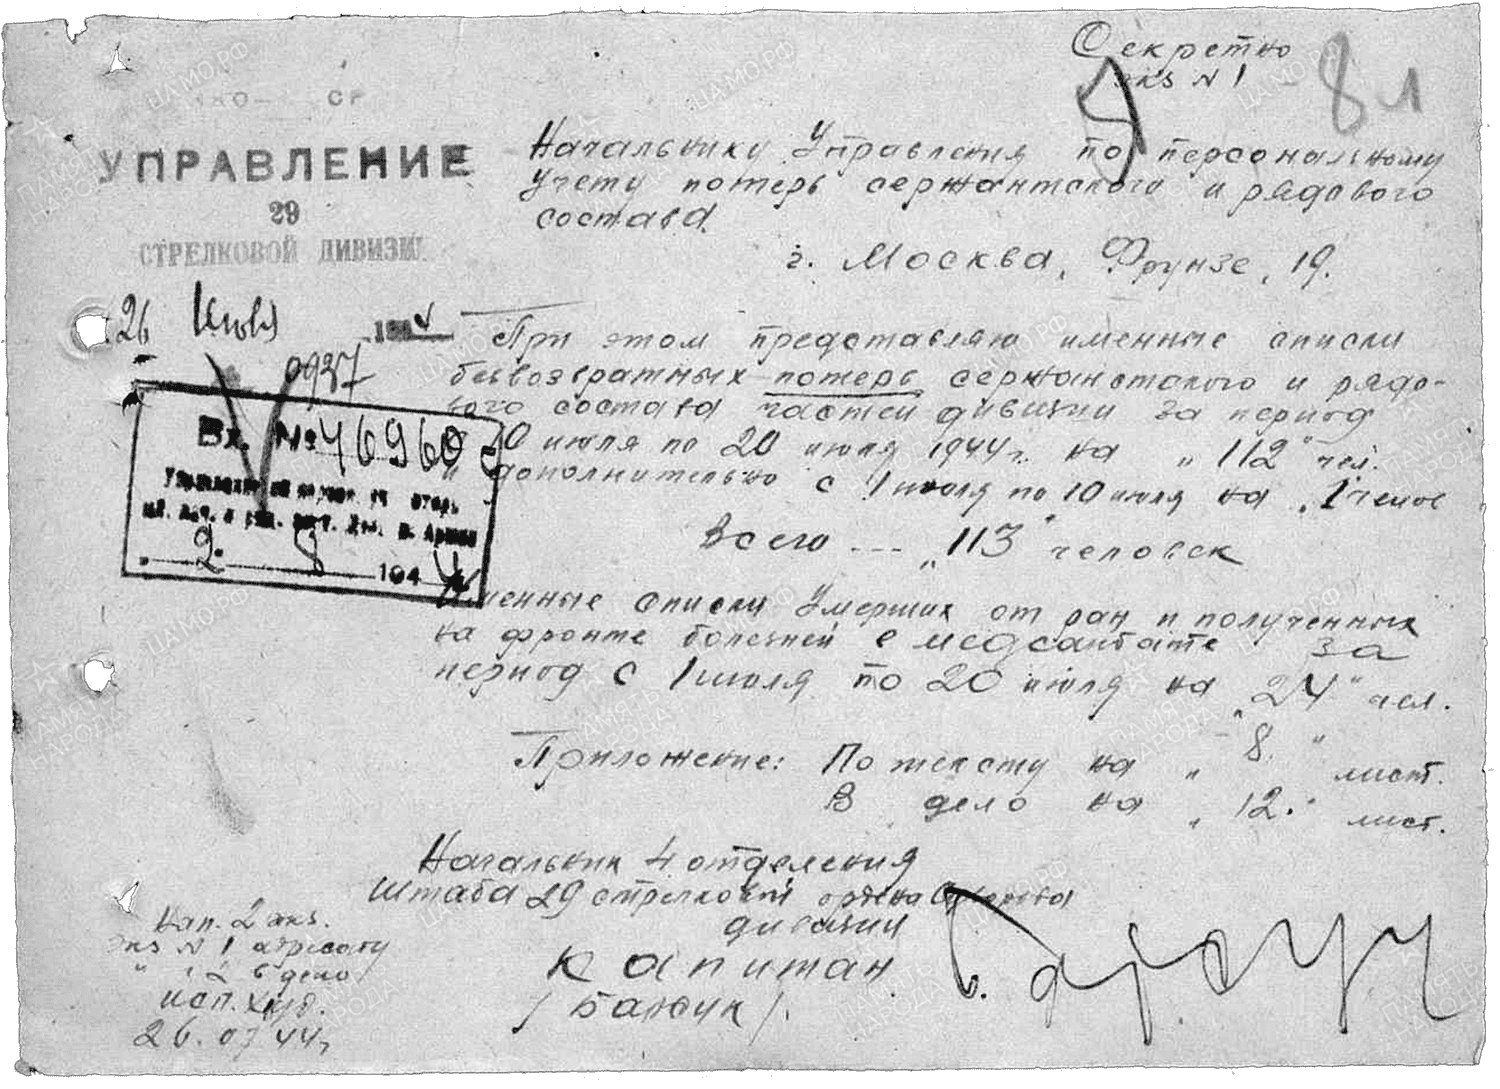 Секретно
экз N 1
81
УПРАВЛЕНИЕ
29
СТРЕЛКОВОЙ ДИВИЗИИ
26 Июля 1944
0937
Начальнику Управления по персональному
учету потерь сержантского и рядового
состава.
г. Москва, Фрунзе, 19.
При этом представляю именные списки
безвозвратных потерь сержантского и рядо-
вого состава частей дивизии за период
10 июля по 20 июля 1944 г. на "112" чел.
дополнительно с 1 июля по 10 июля на "1 челов
Всего --- "113" человек
Вх. № 46960
2. 8 1944
Именные списки Умерших от ран и полученных
на фронте болезней в медсанбате за
период с 1 июля по 20 июля на "24" чел.
Приложение: По тексту на "8" лист.
В дело на "12." лист.
Начальник 4 отделения
штаба 29 стрелковой ордена Суворова
дивизии
Капитан
/Бажук/.
Нап. 2 экз.
экз N 1 адресату
" " 2 в дело
исп.
26.07.44 г.